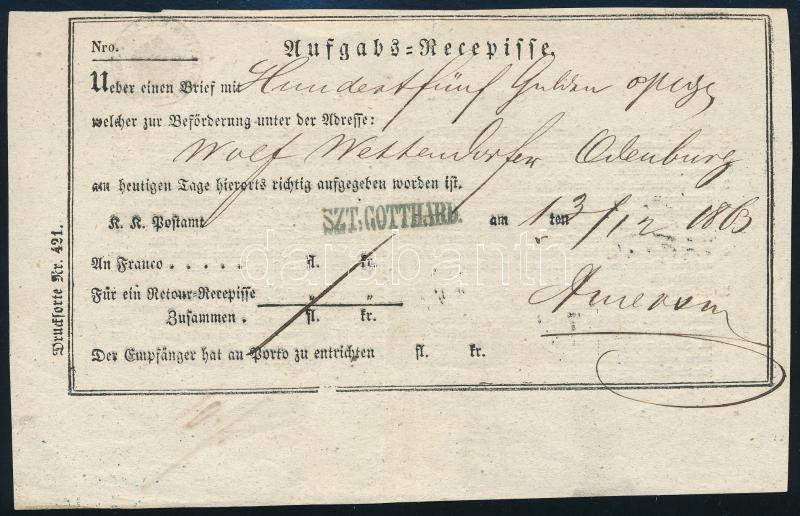 Nro.
Aufgabs=Recepisse.
Ueber einen Brief mit Hundertfünf Gulden
welcher zur Beförderung unter der Adresse:
Wolf Wettendorfer Odenburg
am heutigen Tage hierorts richtig aufgegeben worden ist.
K. K. Postamt SZT. GOTTHARD. am 13 ten /12 1863
An Franco . . . . . fl. kr.
Für ein Retour=Recepisse " "
Zusammen . fl. kr.
Der Empfänger hat an Porto zu entrichten fl. kr.
Drucksorte Nr. 421.
darabanth